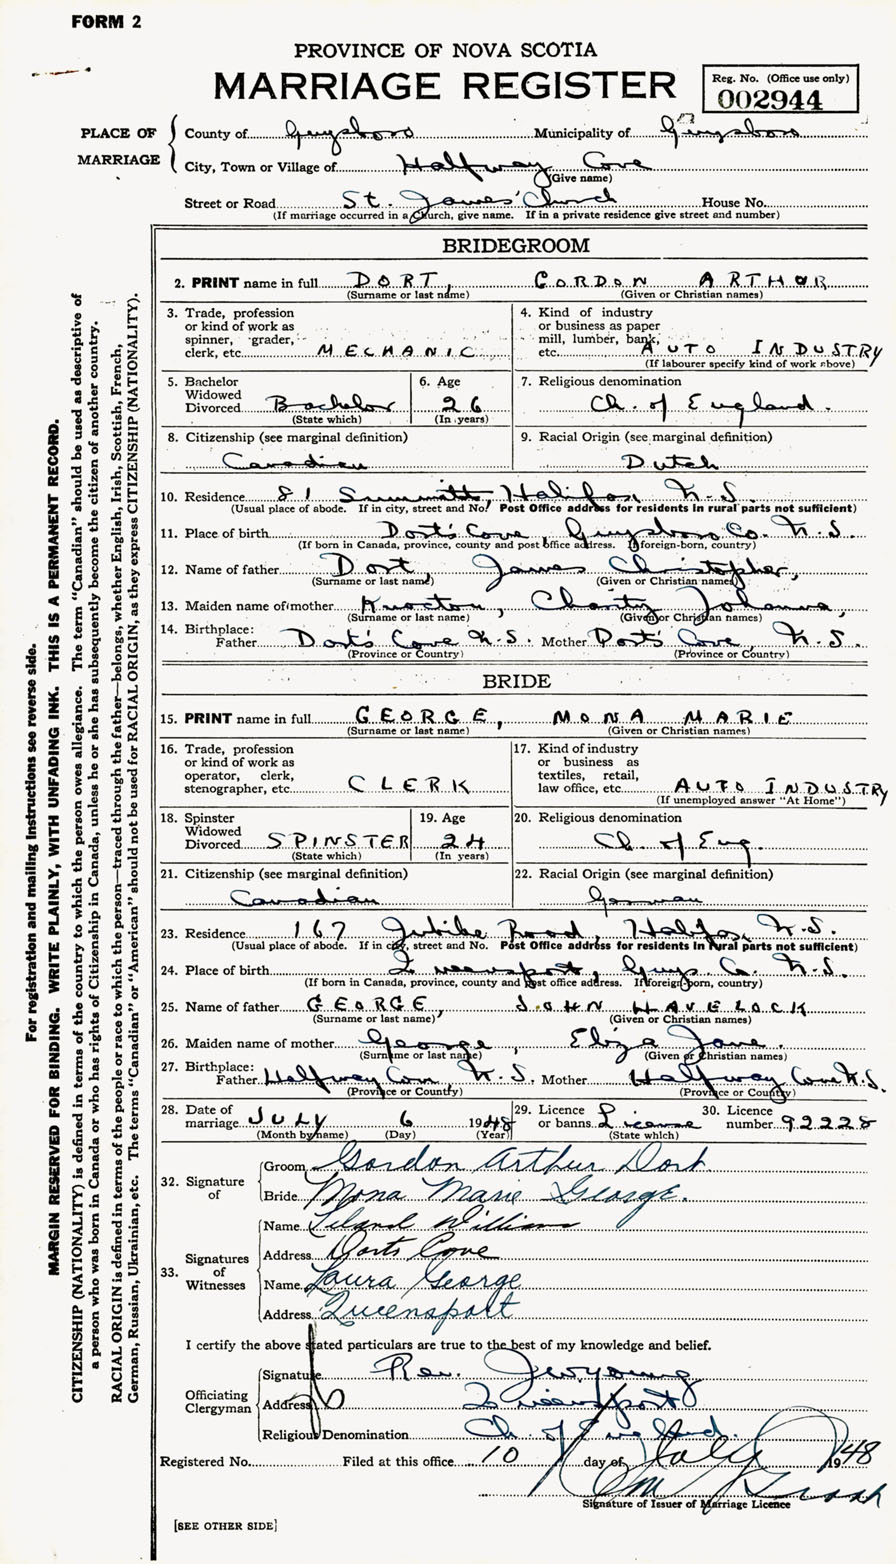 FORM 2
PROVINCE OF NOVA SCOTIA
MARRIAGE REGISTER
Reg. No. (Office use only)
002944
PLACE OF MARRIAGE
County of Guysboro Municipality of Guysboro
City, Town or Village of Halfway Cove
(Give name)
Street or Road St. James' Church House No.
(If marriage occurred in a Church, give name. If in a private residence give street and number)
BRIDEGROOM
2. PRINT name in full DORT, GORDON ARTHUR
(Surname or last name) (Given or Christian names)
3. Trade, profession
or kind of work as
spinner, grader,
clerk, etc. MECHANIC
4. Kind of industry
or business as paper
mill, lumber, bank,
etc. AUTO INDUSTRY
(If labourer specify kind of work above)
5. Bachelor
Widowed
Divorced Bachelor
(State which)
6. Age
26
(In years)
7. Religious denomination
Ch. of England.
8. Citizenship (see marginal definition)
Canadian
9. Racial Origin (see marginal definition)
Dutch
10. Residence 81 Summitt, Halifax, N.S.
(Usual place of abode. If in city, street and No. Post Office address for residents in rural parts not sufficient)
11. Place of birth Dort's Cove, Guysboro Co. N.S.
(If born in Canada, province, county and post office address. If foreign-born, country)
12. Name of father Dort, James Christopher,
(Surname or last name) (Given or Christian names)
13. Maiden name of mother Knocton, Charity Johanna,
(Surname or last name) (Given or Christian names)
14. Birthplace:
Father Dort's Cove N.S. Mother Dort's Cove, N.S.
(Province or Country) (Province or Country)
BRIDE
15. PRINT name in full GEORGE, MONA MARIE
(Surname or last name) (Given or Christian names)
16. Trade, profession
or kind of work as
operator, clerk,
stenographer, etc. CLERK
17. Kind of industry
or business as
textiles, retail,
law office, etc. AUTO INDUSTRY
(If unemployed answer "At Home")
18. Spinster
Widowed
Divorced SPINSTER
(State which)
19. Age
24
(In years)
20. Religious denomination
Ch. of Eng.
21. Citizenship (see marginal definition)
Canadian
22. Racial Origin (see marginal definition)
German
23. Residence 167 Jubilee Road, Halifax, N.S.
(Usual place of abode. If in city, street and No. Post Office address for residents in rural parts not sufficient)
24. Place of birth Queensport, Guys. Co. N.S.
(If born in Canada, province, county and post office address. If foreign-born, country)
25. Name of father GEORGE, JOHN HAVELOCK
(Surname or last name) (Given or Christian names)
26. Maiden name of mother George, Eliza Jane.
(Surname or last name) (Given or Christian names)
27. Birthplace:
Father Halfway Cove, N.S. Mother Halfway Cove N.S.
(Province or Country) (Province or Country)
28. Date of
marriage JULY 6 1948
(Month by name) (Day) (Year)
29. Licence
or banns License
(State which)
30. Licence
number 92228
32. Signature of
Groom Gordon Arthur Dort
Bride Mona Marie George.
33. Signatures of Witnesses
Name Leland William
Address Dorts Cove
Name Laura George
Address Queensport
I certify the above stated particulars are true to the best of my knowledge and belief.
Officiating Clergyman
Signature Rev. Young
Address Queensport
Religious Denomination Ch. of England.
Registered No. Filed at this office 10 day of July 1948
Signature of Issuer of Marriage Licence
[SEE OTHER SIDE]
For registration and mailing instructions see reverse side.
MARGIN RESERVED FOR BINDING. WRITE PLAINLY, WITH UNFADING INK. THIS IS A PERMANENT RECORD.
CITIZENSHIP (NATIONALITY) is defined in terms of the country to which the person owes allegiance. The term "Canadian" should be used as descriptive of
a person who was born in Canada or who has rights of Citizenship in Canada, unless he or she has subsequently become the citizen of another country.
RACIAL ORIGIN is defined in terms of the people or race to which the person—traced through the father—belongs, whether English, Irish, Scottish, French,
German, Russian, Ukrainian, etc. The terms "Canadian" or "American" should not be used for RACIAL ORIGIN, as they express CITIZENSHIP (NATIONALITY).